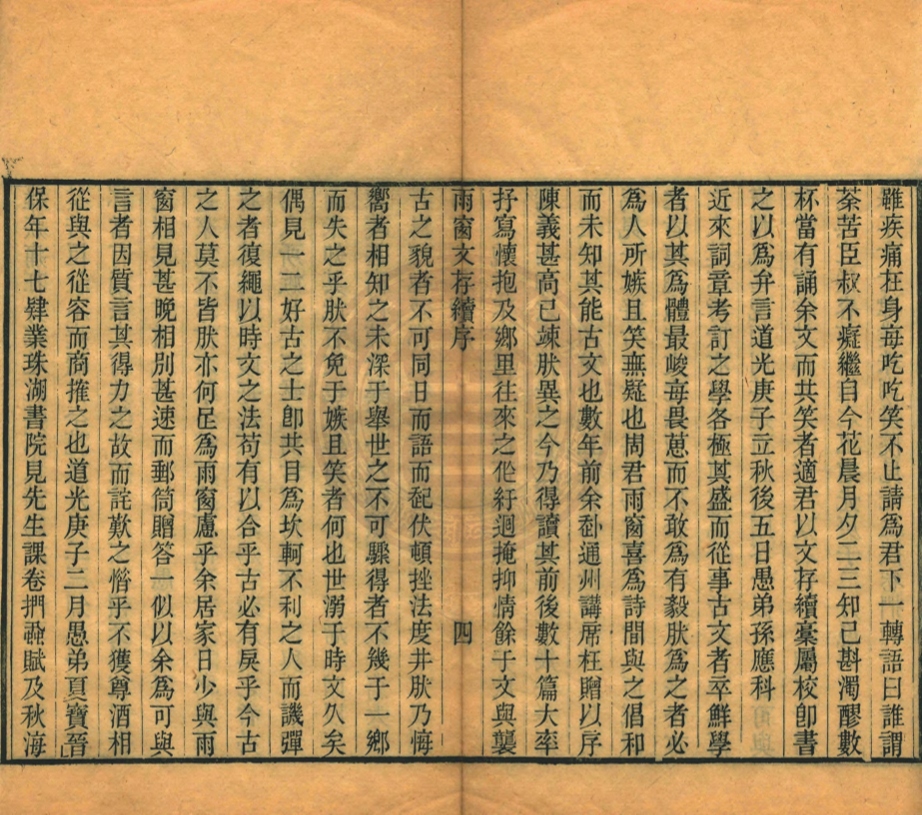 雖疾痛在身每吃吃笑不止請爲君下一轉語曰誰謂
荼苦臣叔不癡繼自今花晨月夕二三知己斟濁醪數
杯當有誦余文而共笑者適君以文存續稾屬校卽書
之以爲弁言道光庚子立秋後五日愚弟孫應科
近來詞章考訂之學各極其盛而從事古文者卒鮮學
者以其爲體最峻每畏葸而不敢爲有毅肰爲之者必
爲人所嫉且笑無疑也周君雨窗喜爲詩間與之倡和
而未知其能古文也數年前余忝通州講席枉贈以序
陳義甚高已竦肰異之今乃得讀其前後數十篇大率
抒寫懷抱及鄉里往來之作紆迴掩抑情餘于文與襲
雨窗文存續序 四
古之貌者不可同日而語而起伏頓挫法度井肰乃悔
嚮者相知之未深于舉世之不可驟得者不幾于一鄉
而失之乎肰不免于嫉且笑者何也世溺于時文久矣
偶見一二好古之士卽共目爲坎軻不利之人而譏彈
之者復繩以時文之法苟有以合乎古必有戾乎今古
之人莫不皆肰亦何足爲雨窗慮乎余居家日少與雨
窗相見甚晚相別甚速而郵筒贈答一似以余爲可與
言者因質言其得力之故而詫歎之惜乎不獲尊酒相
從與之從容而商搉之也道光庚子二月愚弟夏寶晉
保年十七肄業珠湖書院見先生課卷捫蝨賦及秋海